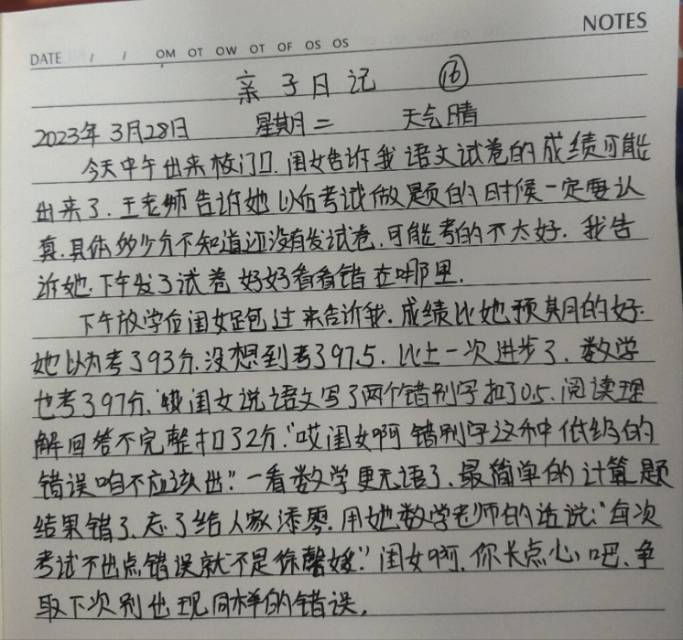 NOTES
DATE / / OM OT OW OT OF OS OS
亲子日记 ⑯
2023年3月28日 星期二 天气晴
今天中午出来校门口,闺女告诉我语文试卷的成绩可能
出来了.王老师告诉她以后考试做题的时候一定要认
真.具体多少分不知道还没有发试卷,可能考的不太好.我告
诉她,下午发了试卷好好看看错在哪里.
下午放学后闺女跑过来告诉我,成绩比她预期的好.
她以为考了93分,没想到考了97.5.比上一次进步了.数学
也考了97分.闺女说语文写了两个错别字扣了0.5.阅读理
解回答不完整扣了2分."哎闺女啊 错别字这种低级的
错误咱不应该出".一看数学更无语了.最简单的计算题
结果错了.忘了给人家添零.用她数学老师的话说:"每次
考试不出点错误就不是你馨媛."闺女啊,你长点心吧.争
取下次别出现同样的错误.